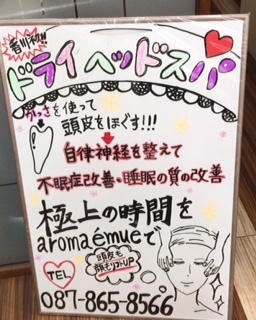 香川初!!
ドライヘッドスパ
かっさを使って
頭皮をほぐす!!!
自律神経を整えて
不眠症改善・睡眠の質の改善
極上の時間を
aromaémueで
頭皮も
顔もリフトUP
TEL
087-865-8566